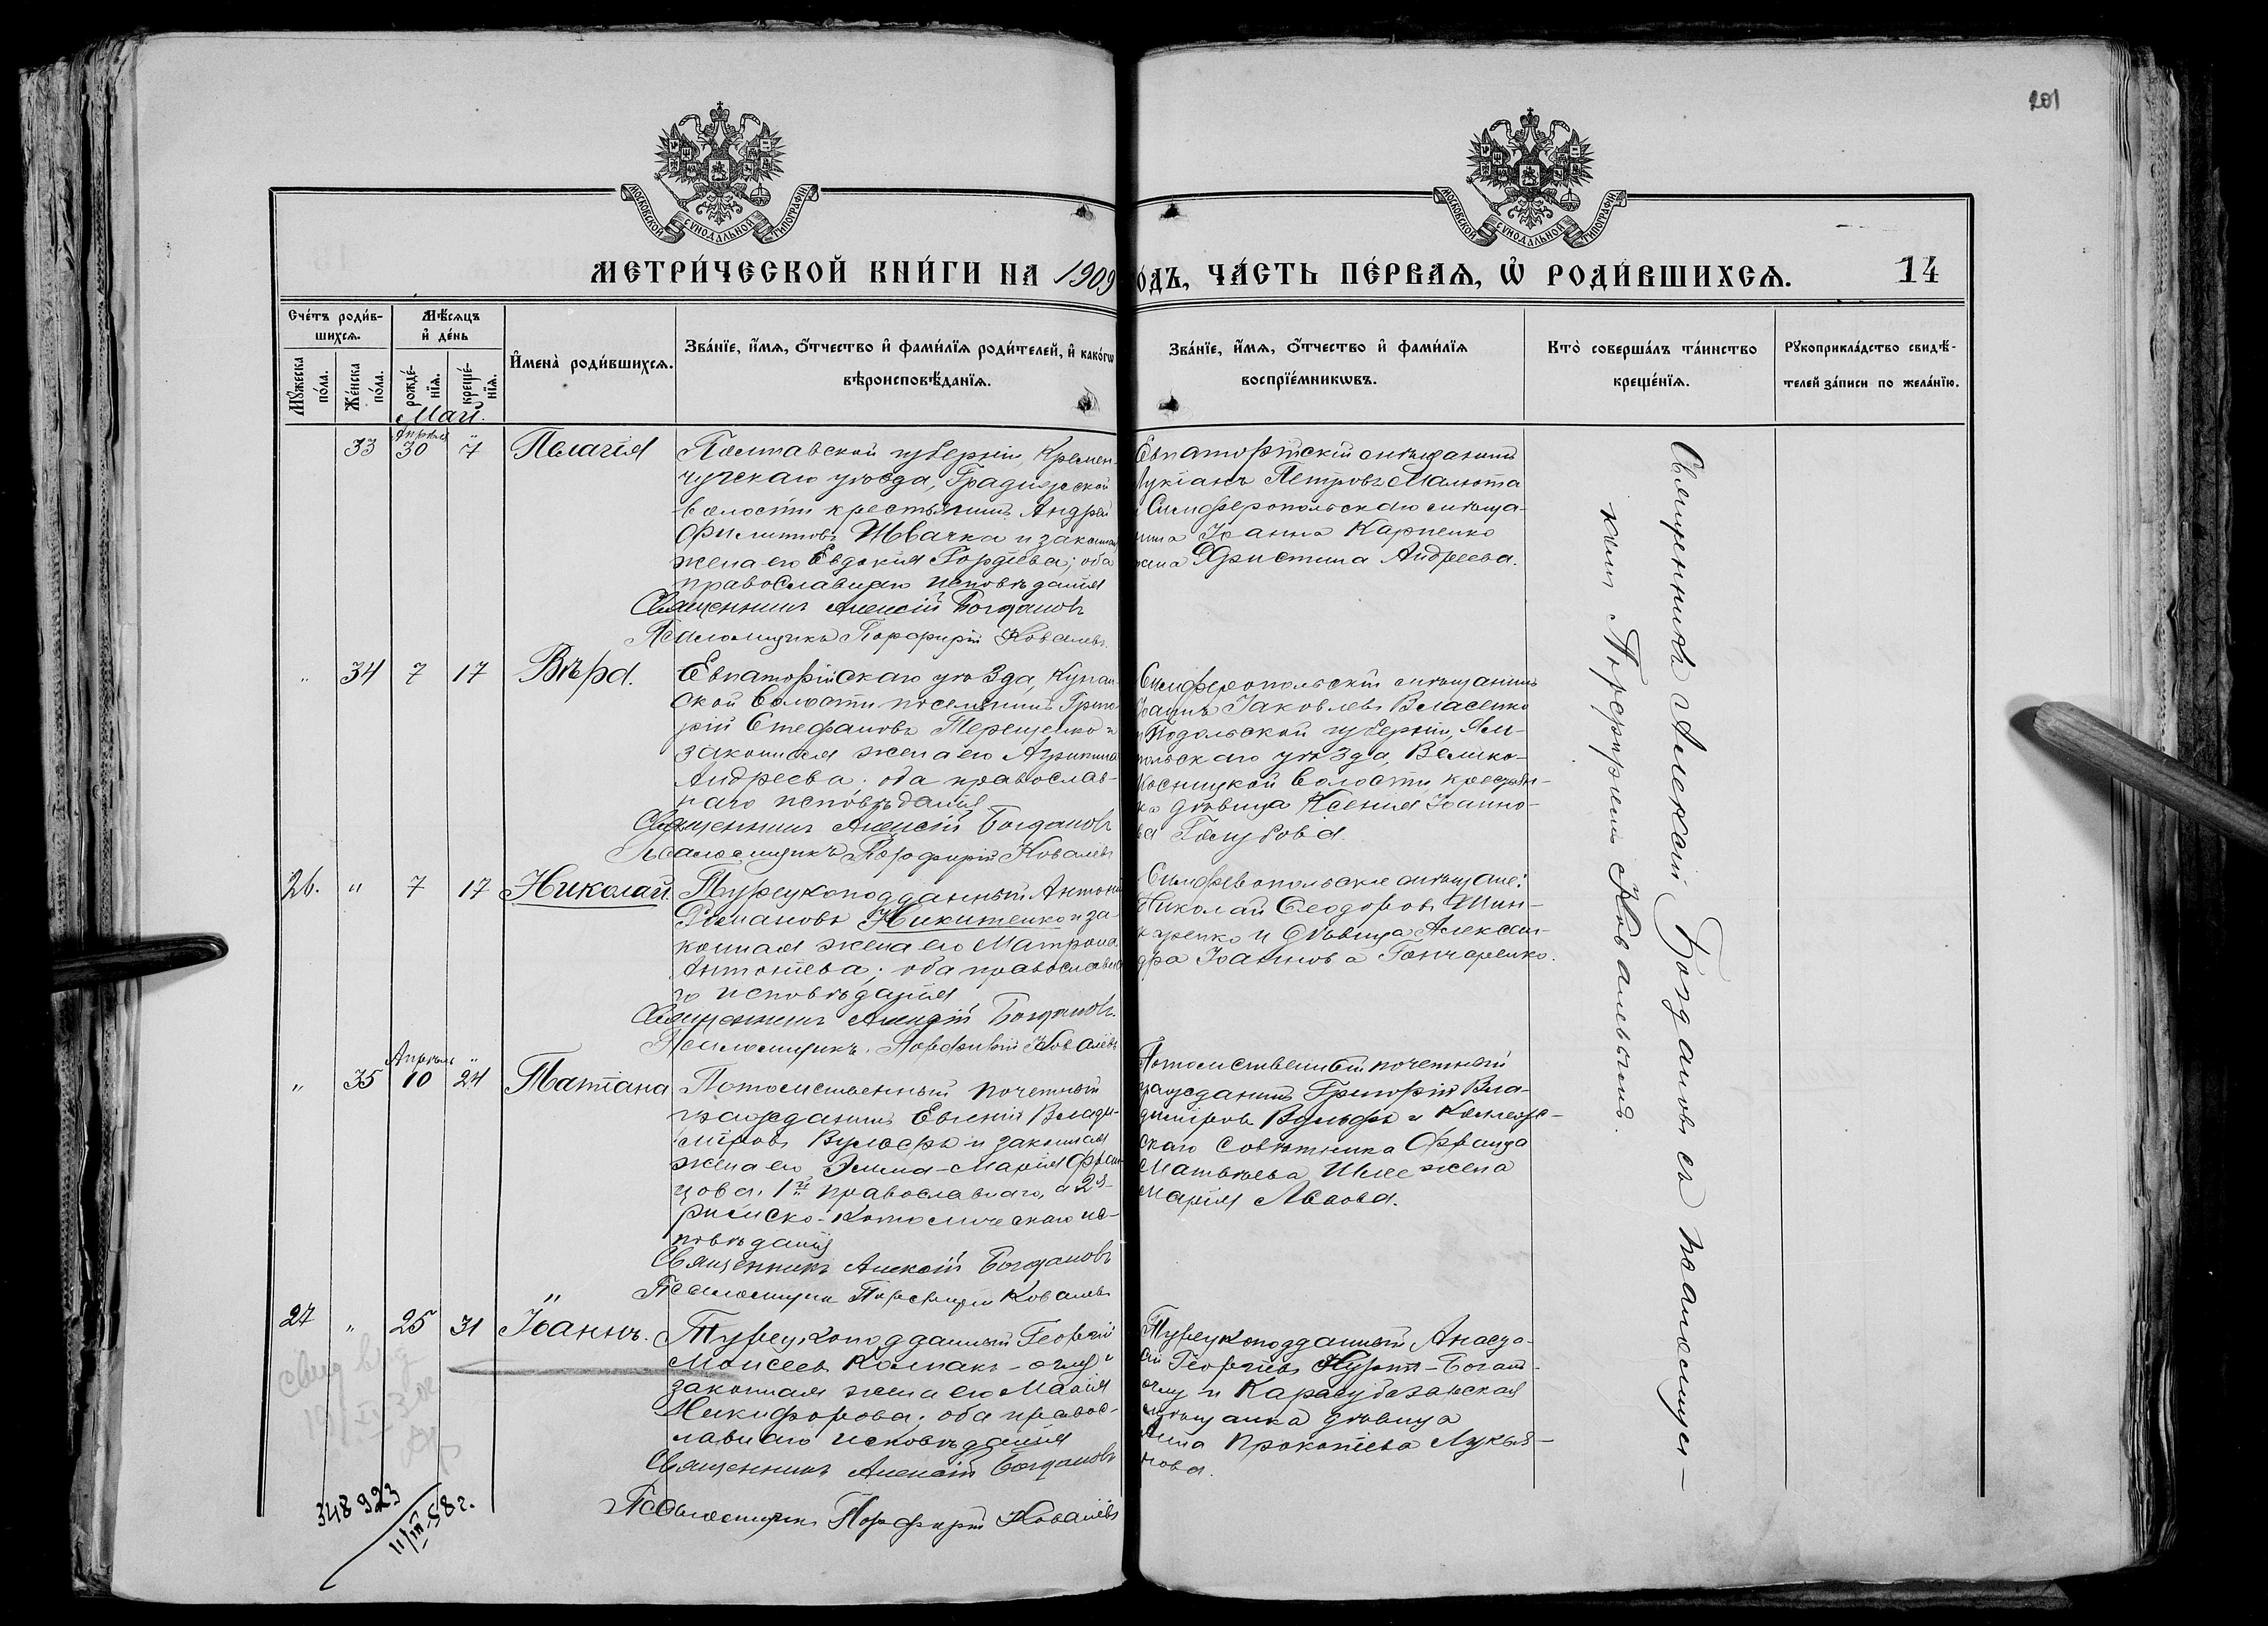 201
МОСКОВСКОЙ СУНОДАЛЬНОЙ ТИПОГРАФІИ
МОСКОВСКОЙ СУНОДАЛЬНОЙ ТИПОГРАФІИ
МЕТРИ́ЧЕСКОЙ КНИ́ГИ НА 1909
ОДЪ, ЧА́СТЬ ПЕ́РВАѦ, Ѡ҆ РОДИ́ВШИХСѦ. 14
Сче́тъ роди́в-
шихсѧ.
Мѣ́сѧцъ
и҆ де́нь
Мꙋ́жеска по́ла.
Же́нска по́ла.
рожде́-нїѧ.
креще́-нїѧ.
И҆мена̀ роди́вшихсѧ.
Зва́нїе, и҆́мѧ, ѻ҆́тчество и҆ фами́лїѧ роди́телей, и҆ како́гѡ
вѣроисповѣ́данїѧ.
Зва́нїе, и҆́мѧ, ѻ҆́тчество и҆ фами́лїѧ
воспрїе́мникѡвъ.
Кто̀ соверша́лъ та́инство
креще́нїѧ.
Рꙋкоприкла́дство свидѣ́-
телей за́писи по жела́нїю.
Май.
33 Апрѣля 30 7 Пелагія
Полтавской губерніи, Кремен-
чугскаго уѣзда, Градижской
волости крестьянинъ Андрей
Филипповъ Швачка и законная
жена его Евдокія Гордіева; оба
православнаго исповѣданія
Священникъ Алексій Богдановъ
Псаломщикъ Порфирій Ковалевъ
Евпаторійскій мѣщанинъ
Лукіанъ Петровъ Малюта
и Симферопольскаго мѣща-
нина Іоанна Карпенко
жена Христина Андреева.
" 34 7 17 Вѣра.
Евпаторійскаго уѣзда, Курман-
ской волости поселянинъ Григо-
рій Стефановъ Терещенко и
законная жена его Агрипина
Андреева; оба православ-
наго исповѣданія
Священникъ Алексій Богдановъ
Псаломщикъ Порфирій Ковалевъ
Симферопольскій мѣщанинъ
Іоаннъ Іаковлевъ Власенко
и Подольской губерніи, Ям-
польскаго уѣзда, Велико-
Косницкой волости крестьян-
ка дѣвица Ксенія Іоанно-
ва Голубова.
26. " 7 17 Николай.
Турецкоподданный Антоній
Романовъ Никитенко и за-
конная жена его Матрона
Антоніева; оба православна-
го исповѣданія
Священникъ Алексій Богдановъ.
Псаломщикъ Порфирій Ковалевъ
Симферопольскіе мѣщане:
Николай Ѳеодоровъ Шин-
каренко и дѣвица Алексан-
дра Іоаннова Гончаренко.
" 35 Апрѣль 10 24 Татіана
Потомственный почетный
гражданинъ Евгеній Влади-
міровъ Вульфъ и законная
жена его Эмма-Марія Фран-
цова, 1й православнаго, а 2я
римско-католическаго ис-
повѣданія
Священникъ Алексій Богдановъ
Псаломщикъ Порфирій Ковалевъ
Потомственный почетный
гражданинъ Григорій Вла-
диміровъ Вульфъ и Коллеж-
скаго Совѣтника Франца
Матвѣева жена
Марія Львова.
27 " 25 31 Іоаннъ.
Турецкоподданный Георгій
Моисеевъ Колпакъ-оглу и
законная жена его Марія
Никифорова; оба правос-
лавнаго исповѣданія
Священникъ Алексій Богдановъ
Псаломщикъ Порфирій Ковалевъ
Турецкоподданный Анаста-
сій Георгіевъ
оглу и Карасубазарская
мѣщанка дѣвица
Анна Прокопіева Лукья-
нова.
Священникъ Алексій Богдановъ съ псаломщи-
комъ Порфиріемъ Ковалевымъ.
348923
11/III-58г.